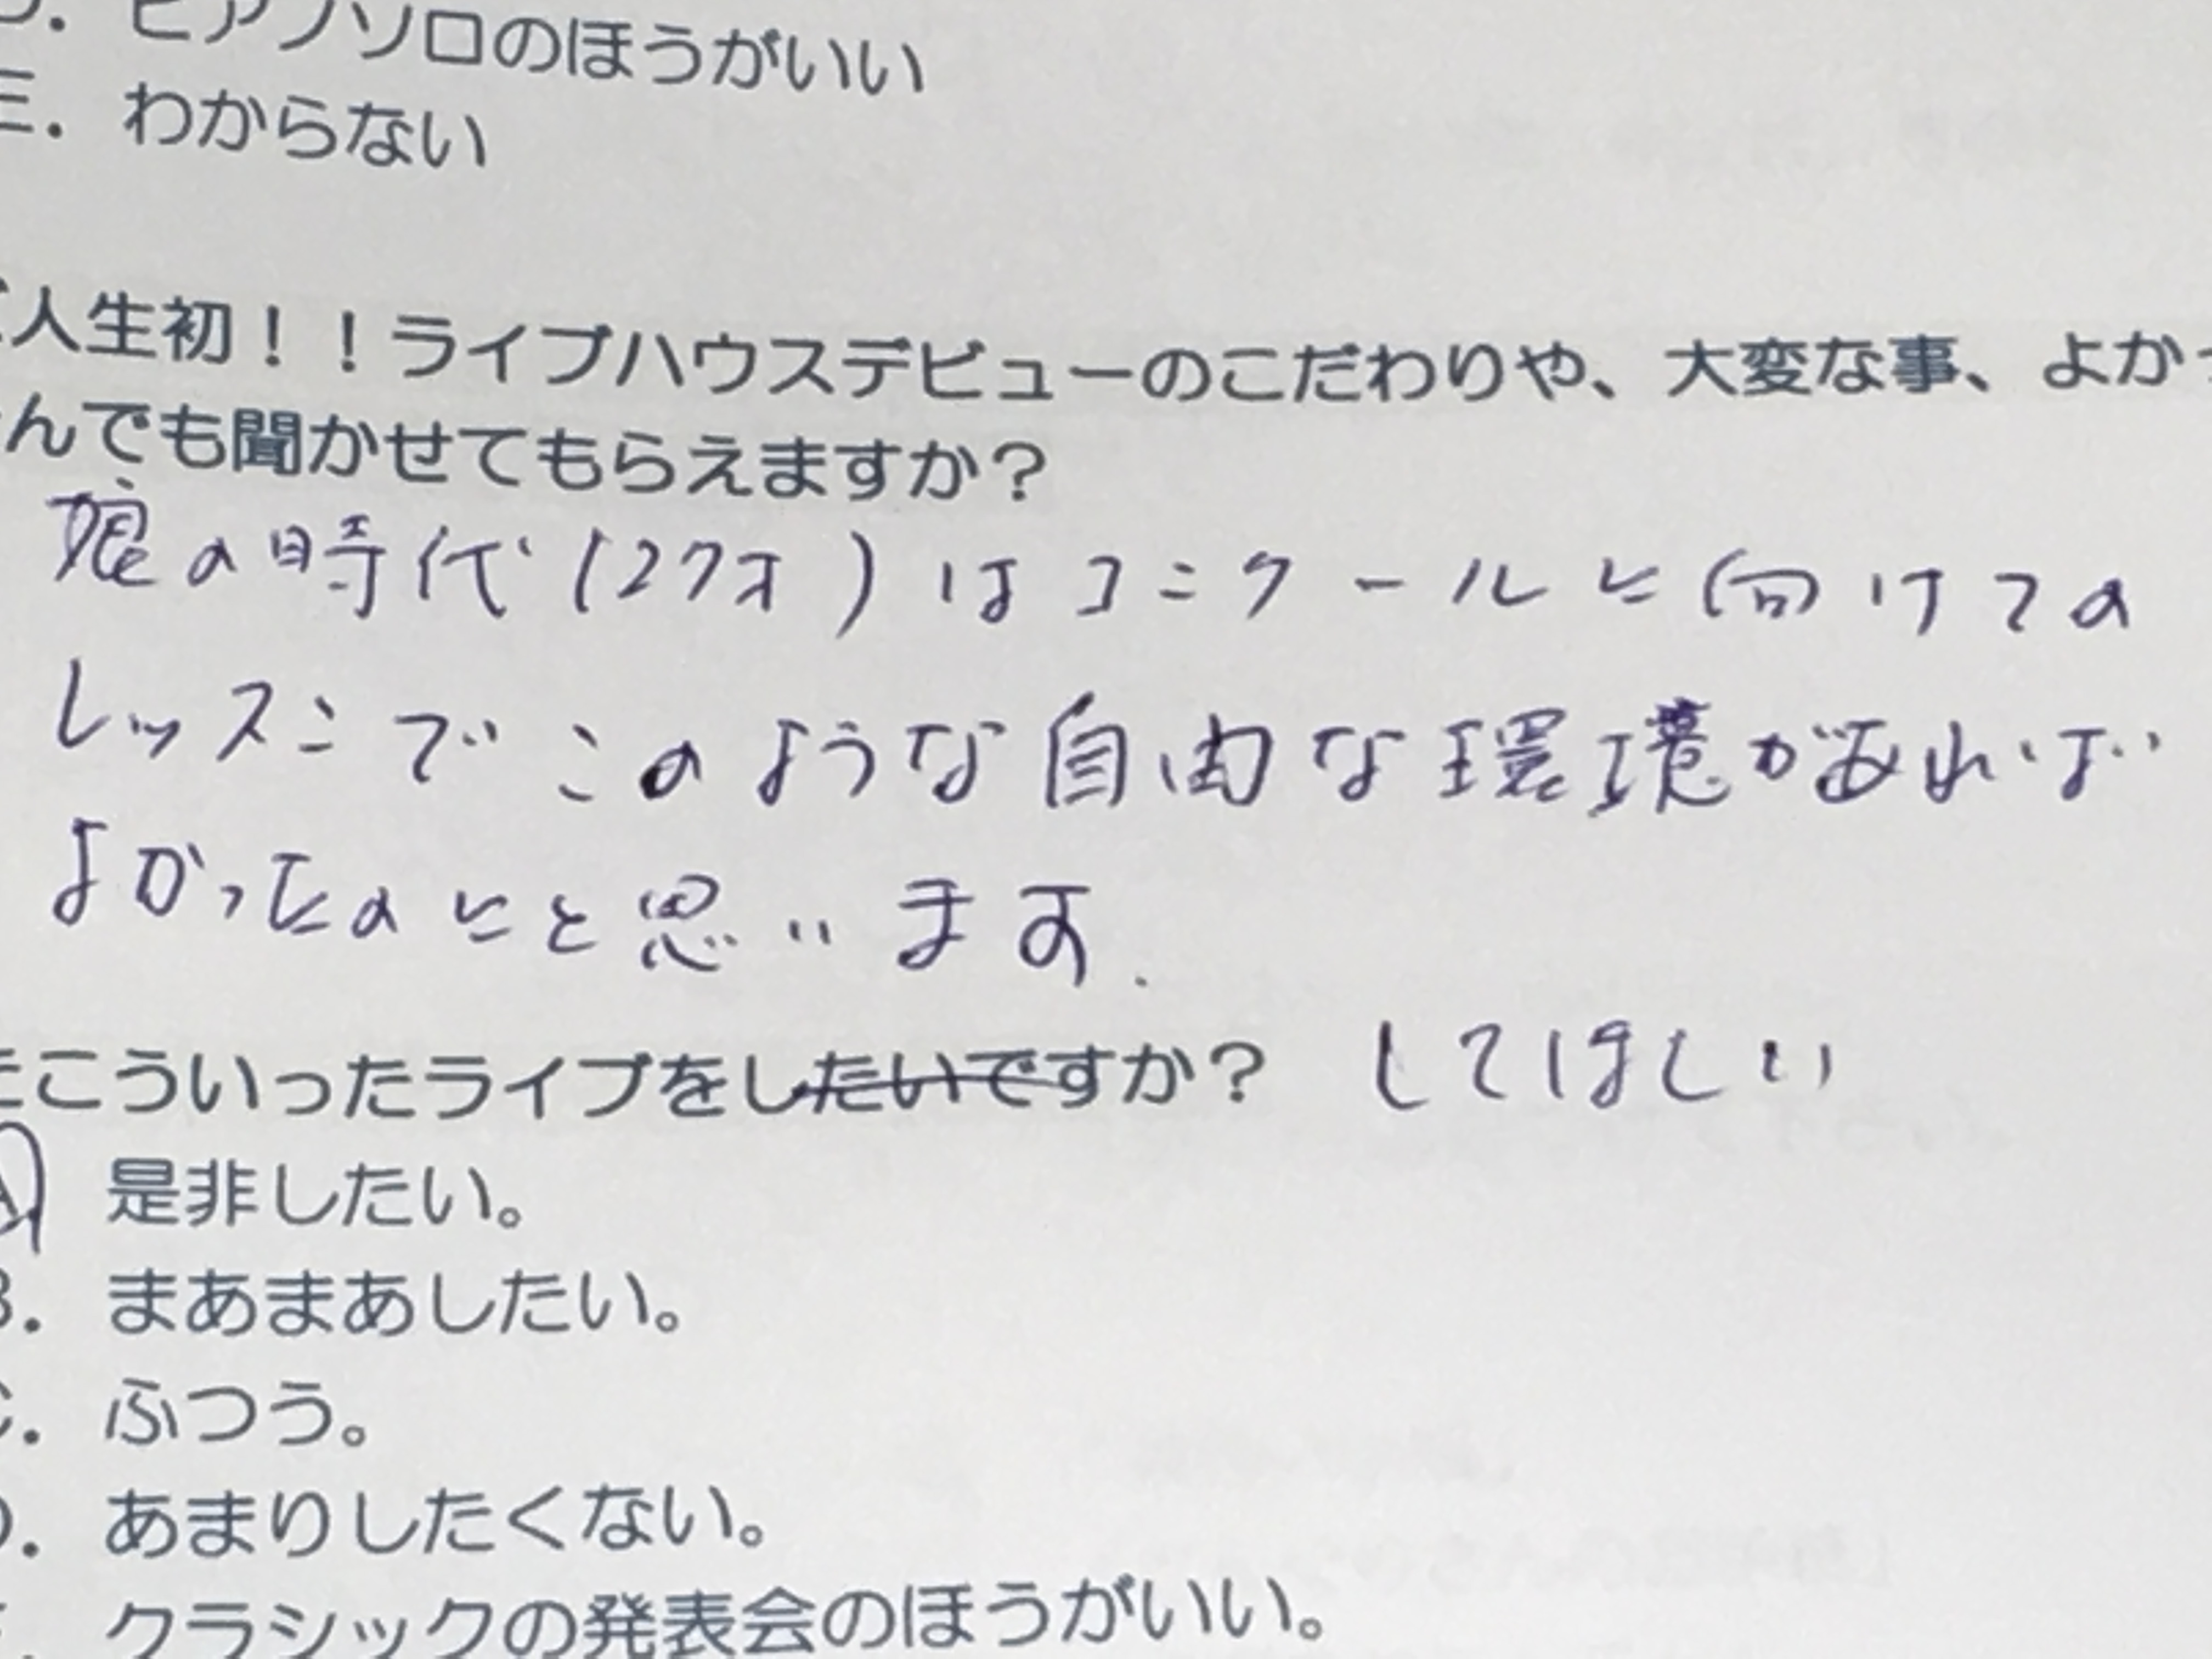 D. ピアノソロのほうがいい
E. わからない
人生初！！ライブハウスデビューのこだわりや、大変な事、よかっ
んでも聞かせてもらえますか？
娘の時代(27才)はコンクールに向けての
レッスンでこのような自由な環境があれば
よかったのにと思います.
たこういったライブをしたいですか？ してほしい
A 是非したい。
B. まあまあしたい。
C. ふつう。
D. あまりしたくない。
E. クラシックの発表会のほうがいい。